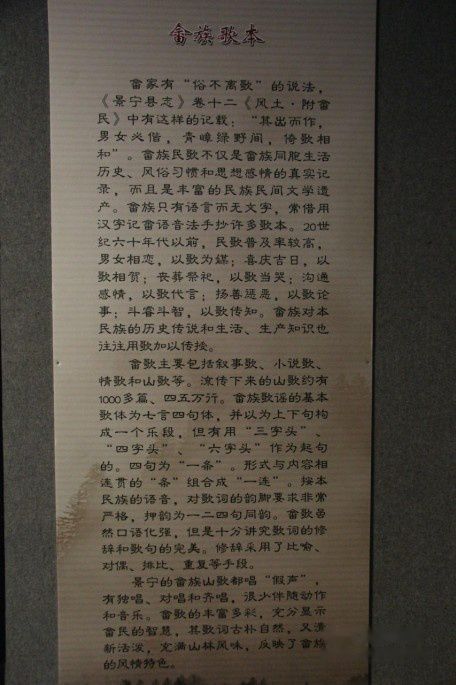 畲族歌本
畲家有“俗不离歌”的说法，
《景宁县志》卷十二《风土·附畲
民》中有这样的记载：“其出而作，
男女必偕，青嶂绿野间，倚歌相
和”。畲族民歌不仅是畲族同胞生活
历史、风俗习惯和思想感情的真实记
录，而且是丰富的民族民间文学遗
产。畲族只有语言而无文字，常借用
汉字记畲语音法手抄许多歌本。20世
纪六十年代以前，民歌普及率较高，
男女相恋，以歌为媒；喜庆吉日，以
歌相贺；丧葬祭祀，以歌当哭；沟通
感情，以歌代言；扬善惩恶，以歌论
事；斗睿斗智，以歌传知。畲族对本
民族的历史传说和生活、生产知识也
往往用歌加以传授。
畲歌主要包括叙事歌、小说歌、
情歌和山歌等。流传下来的山歌约有
1000多篇、四五万行。畲族歌谣的基本
歌体为七言四句体，并以为上下句构
成一个乐段，但有用“三字头”、
“四字头”、“六字头”作为起句
的。四句为“一条”。形式与内容相
连贯的“条”组合成“一连”。按本
民族的语音，对歌词的韵脚要求非常
严格，押韵为一二四句同韵。畲歌虽
然口语化强，但是十分讲究歌词的修
辞和歌句的完美。修辞采用了比喻、
对偶、排比、重复等手段。
景宁的畲族山歌都唱“假声”，
有独唱、对唱和齐唱，很少伴随动作
和音乐。畲歌的丰富多彩，充分显示
畲民的智慧，其歌词古朴自然，又清
新活泼，充满山林风味，反映了畲族
的风情特色。